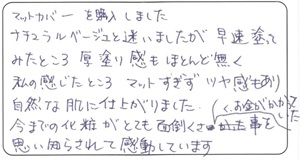 マットカバー を購入しました
ナチュラルベージュと迷いましたが 早速塗って
みたところ 厚塗り感もほとんど無く
私の感じたところ マットすぎず ツヤ感もあり
自然な肌に仕上がりました。
くお金がかかってた
今までの化粧がとても面倒くさかった事を
思い知らされて感動しています